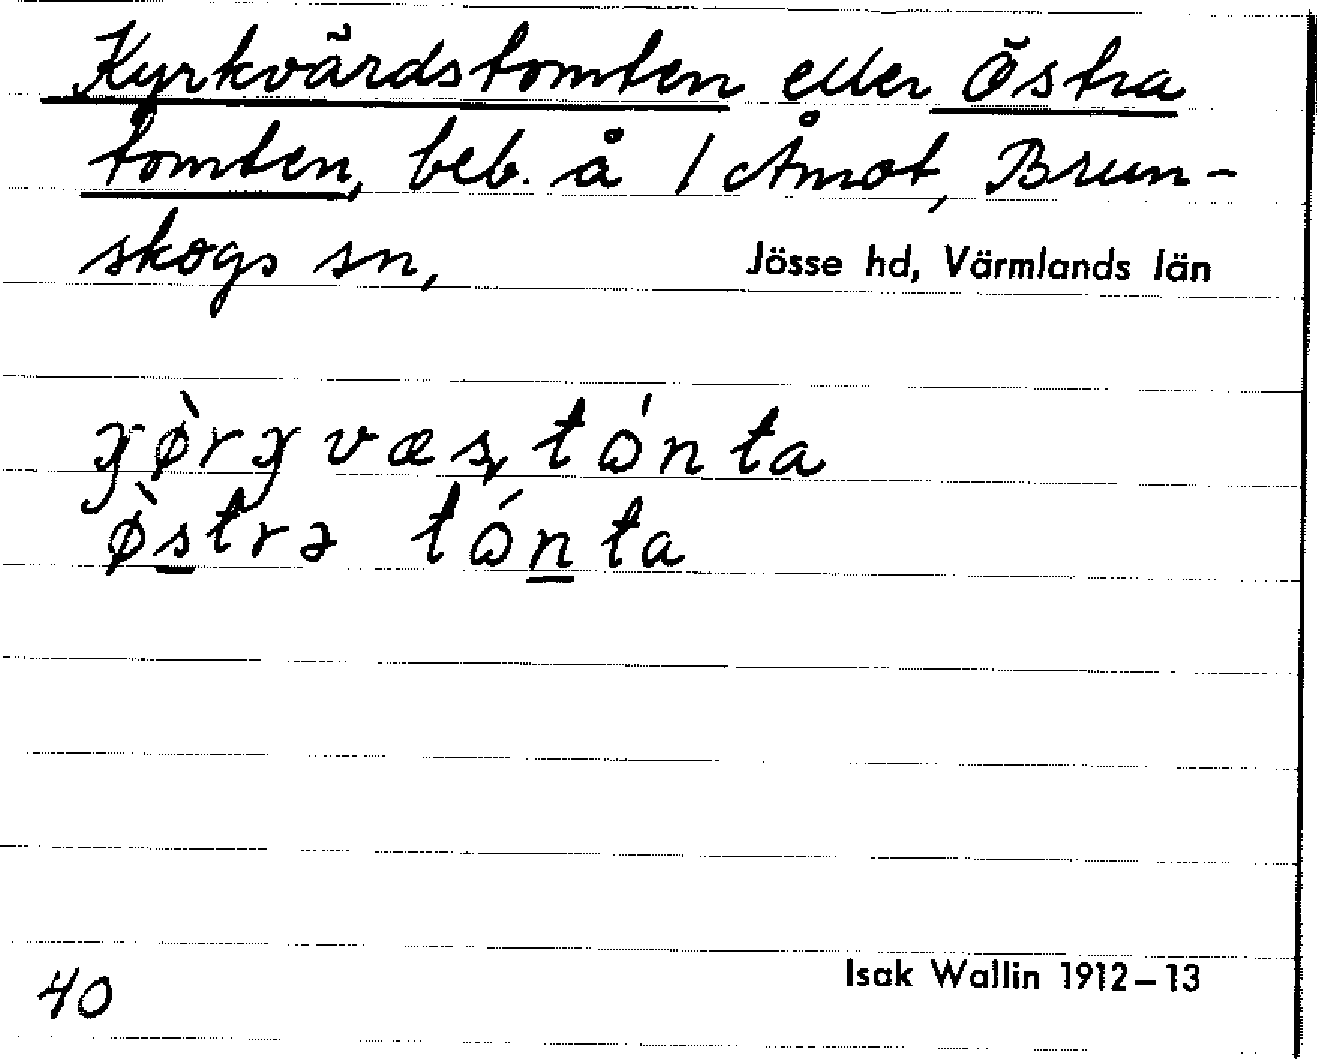 Kyrkvärdstomten eller Östra
tomten, beb. å 1 Åmot, Brun-
skogs sn, Jösse hd, Värmlands län
østrə tɷ́nta
40 Isak Wallin 1912–13